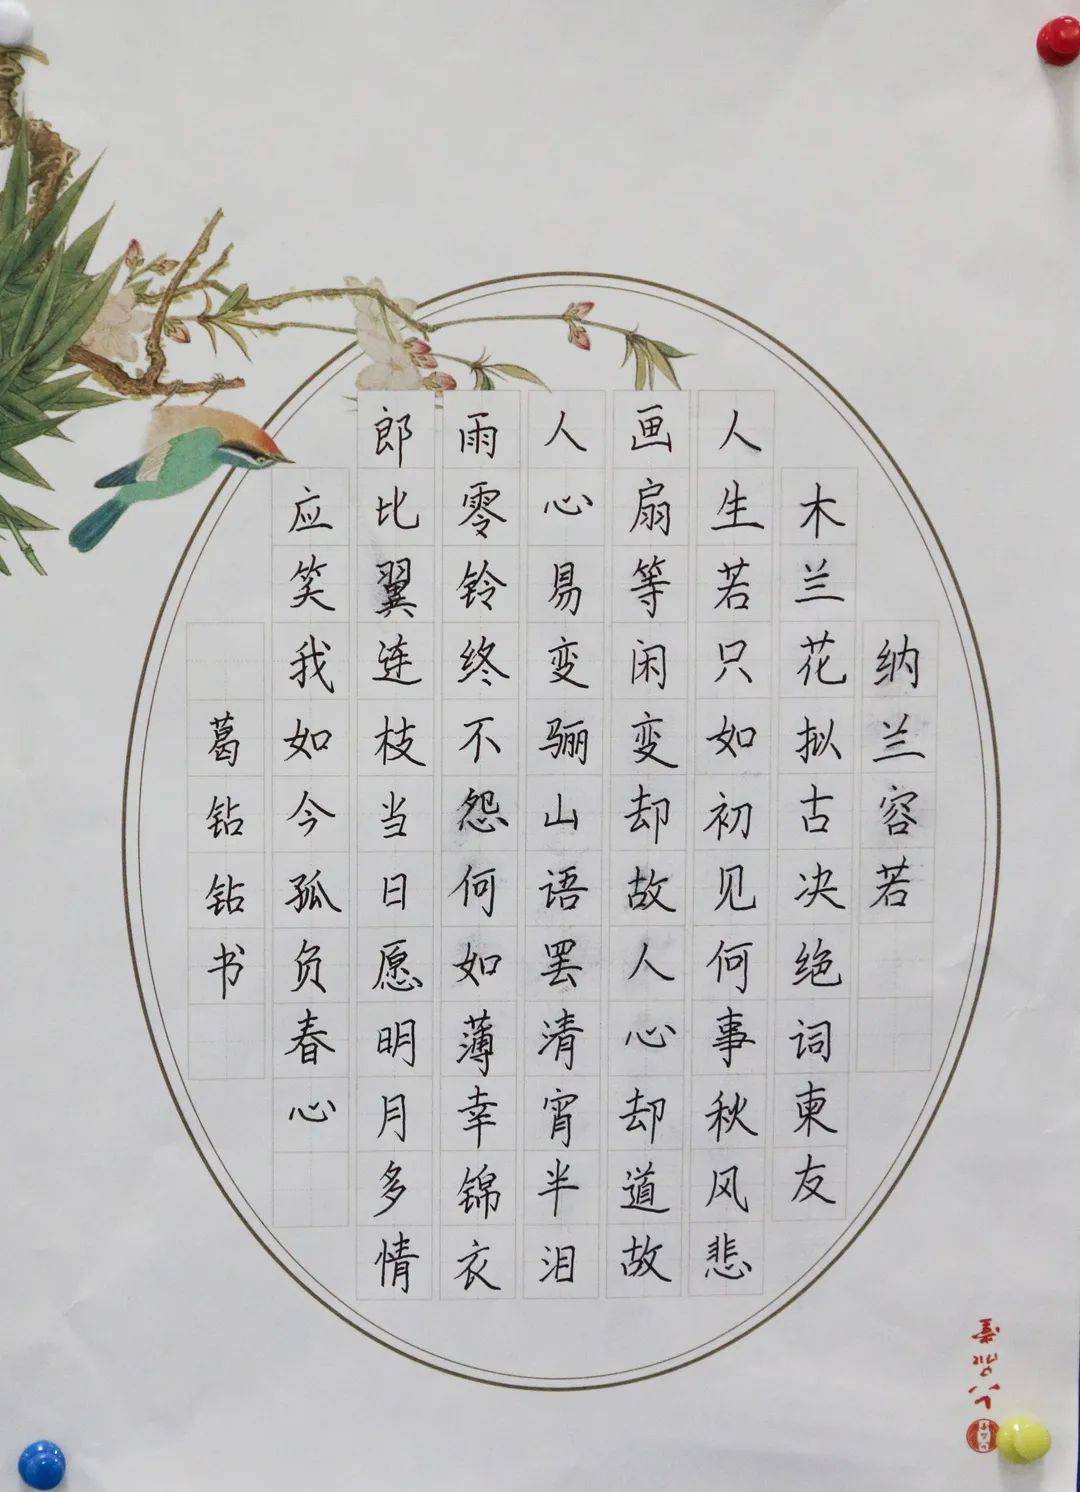 纳兰容若
木兰花拟古决绝词柬友
人生若只如初见何事秋风悲
画扇等闲变却故人心却道故
人心易变骊山语罢清宵半泪
雨零铃终不怨何如薄幸锦衣
郎比翼连枝当日愿明月多情
应笑我如今孤负春心
葛钻钻书